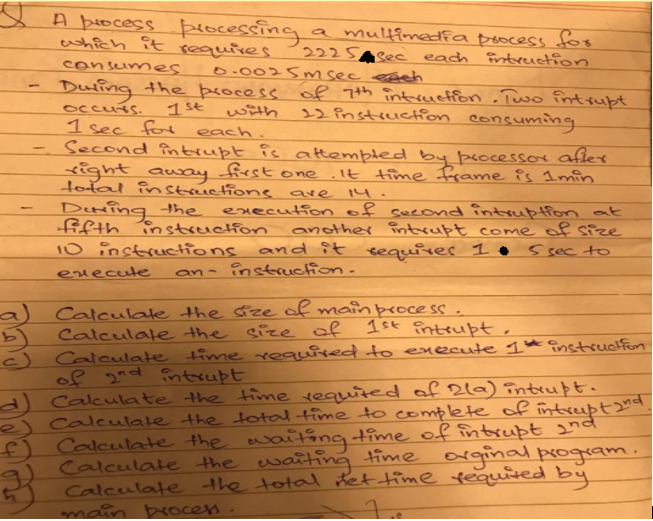 Q A process processing a multimedia process for
which it requires 2225 sec each intruction
consumes 0.0025msec
- During the process of 7th intruction. Two intrupt
occurs. 1st with 22 instruction consuming
1 sec for each.
- Second intrupt is attempted by processor after
right away first one. It time frame is 1min
total instructions are 14.
- During the execution of second intruption at
fifth instruction another intrupt come of size
10 instructions and it requires 1.5 sec to
execute an- instruction.
a) Calculate the size of main process.
b) Calculate the size of 1st intrupt.
c) Calculate time required to execute 1 instruction
of 2nd intrupt
d) Calculate the time required of 2(a) intrupt.
e) Calculate the total time to complete of intrupt 2nd.
f) Calculate the waiting time of intrupt 2nd
g) Calculate the waiting time orginal program.
h) Calculate the total net time required by
main process.